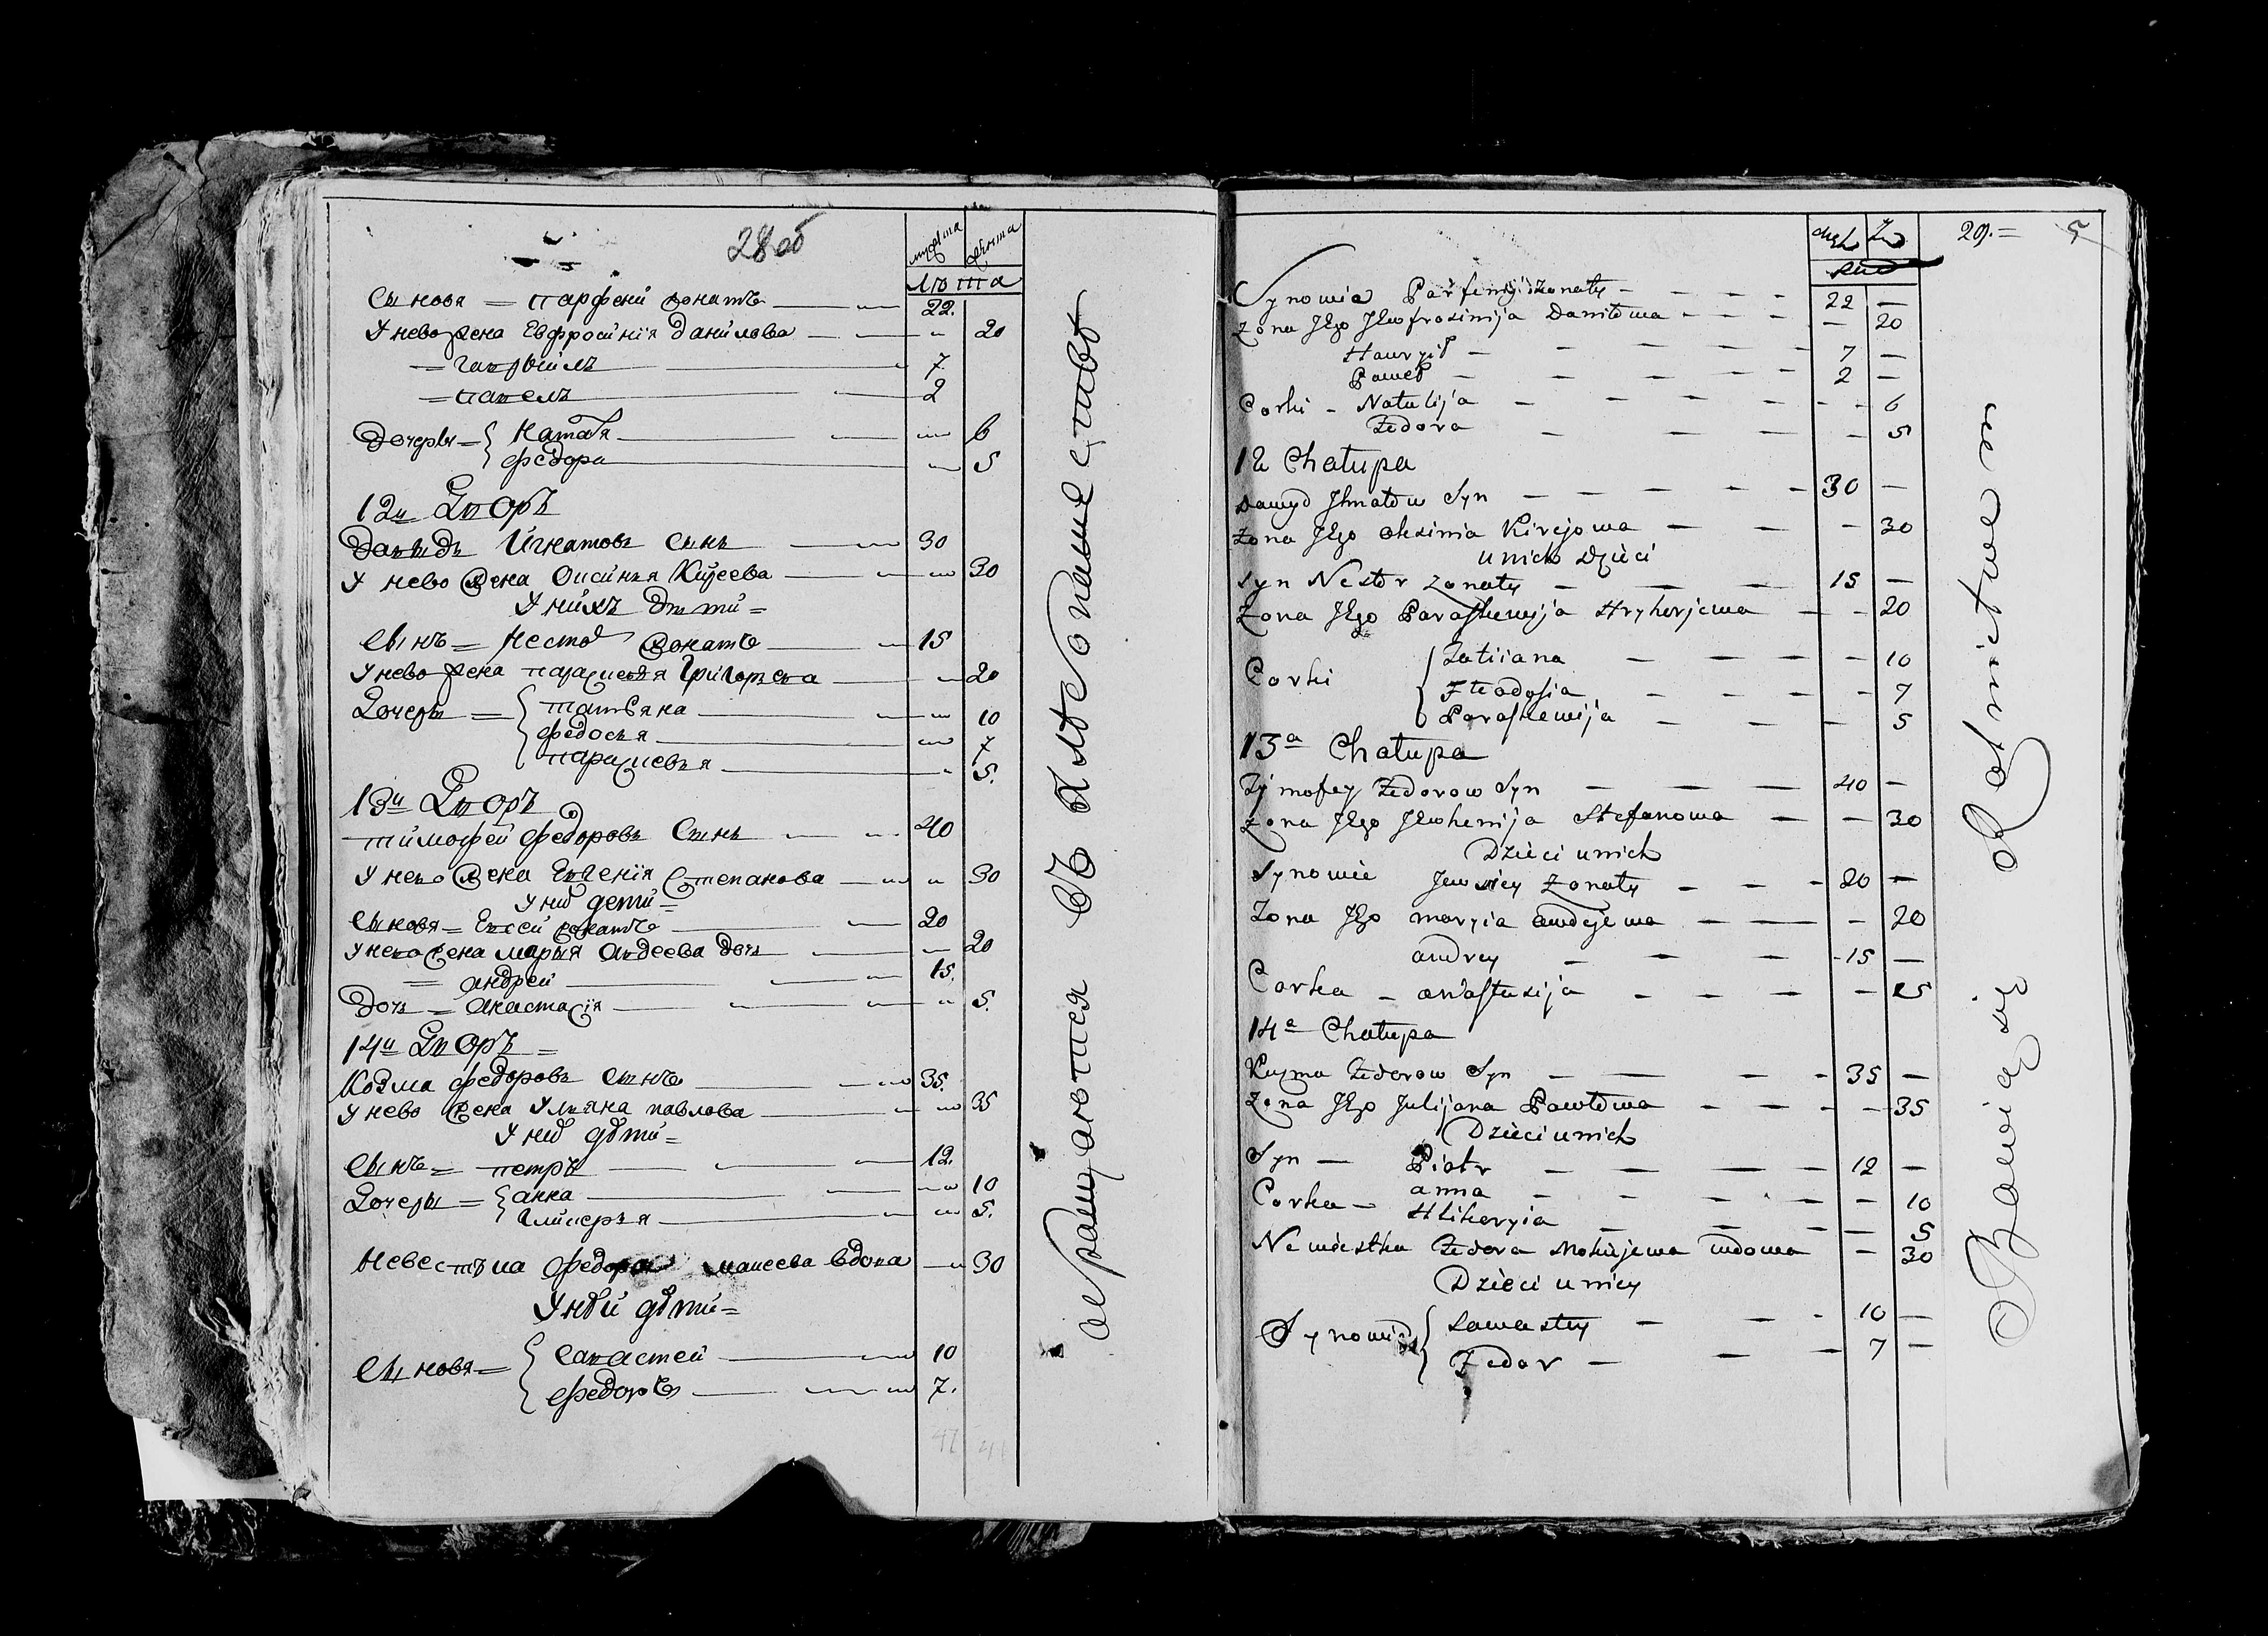 28 об
мужеска женска
лѣта
Сыновя = парфени женатъ 22.
У нево жена Евфросинія Данилова 20
= гаврыилъ 7
= павелъ 2
Дочеры = { Наталя 6
федора 5
12й Дворъ
Давыдъ Игнатовъ Сынъ 30
У нево жена Оксинья Киреева 30
У нихъ дети =
Сынъ = Нестор женатъ 15
У нево жена парасковя Григорьева 20
Дочеры = { татьяна 10
федосья 7
парасковья 5.
13й Дворъ
тимофей федоровъ Сынъ 40
У нево жена Евгенія Степанова 30
У них дети =
Сыновя = Евсей женатъ 20
У нево жена Марья Авдеева дочь 20
= андрей 15.
Дочь = анастасія 5.
14й Дворъ =
Козма федоровъ сынъ 35.
У нево жена Ульяна павлова 35
У них дѣти =
Сынъ = петръ 12.
Дочеры = { анна 10
Гликерья 5.
Невестка федора макеева вдова 30
У нѣй дѣти =
Сыновя = { савастей 10
федоръ 7.
47 41
обращаются въ хлебопашестве
29. =
Synowia Parfeny żonaty 22 —
Żona Jego Jewfrosinija Daniłowa — 20
Hawrył 7 —
Paweł 2 —
Corki - Natalija 6
Fedora 5
12 Chałupa
Dawyd Ihnatow Syn 30 —
Żona Jego Oksinia Kirejowa 30
u nich Dzieci
Syn Nestor żonaty 15 —
Żona Jego Paraskewija Hryhorjewa 20
Corki { Tatiiana 10
Fteodosia 7
Paraskewija 5
13a Chałupa
Tymofey Fedorow Syn 40 —
Żona Jego Jewhenija Stefanowa 30
Dzieci u nich
Synowie Jewsiey żonaty 20 —
Żona Jego maryia awdejewa 20
andrey 15 —
Corka - anastasija 5
14a Chałupa
Kuzma Fedorow Syn 35 —
Żona Jego Julijana Pawłowa 35
Dzieci u nich
Syn — Piotr 12 —
Corka - anna 10
Hlikeryia 5
Newiestka Fedora Mokiejewa wdowa 30
Dzieci u niey
Synowie { Sawastey 10 —
Fedor 7 —
Bawią się Rolnictwem